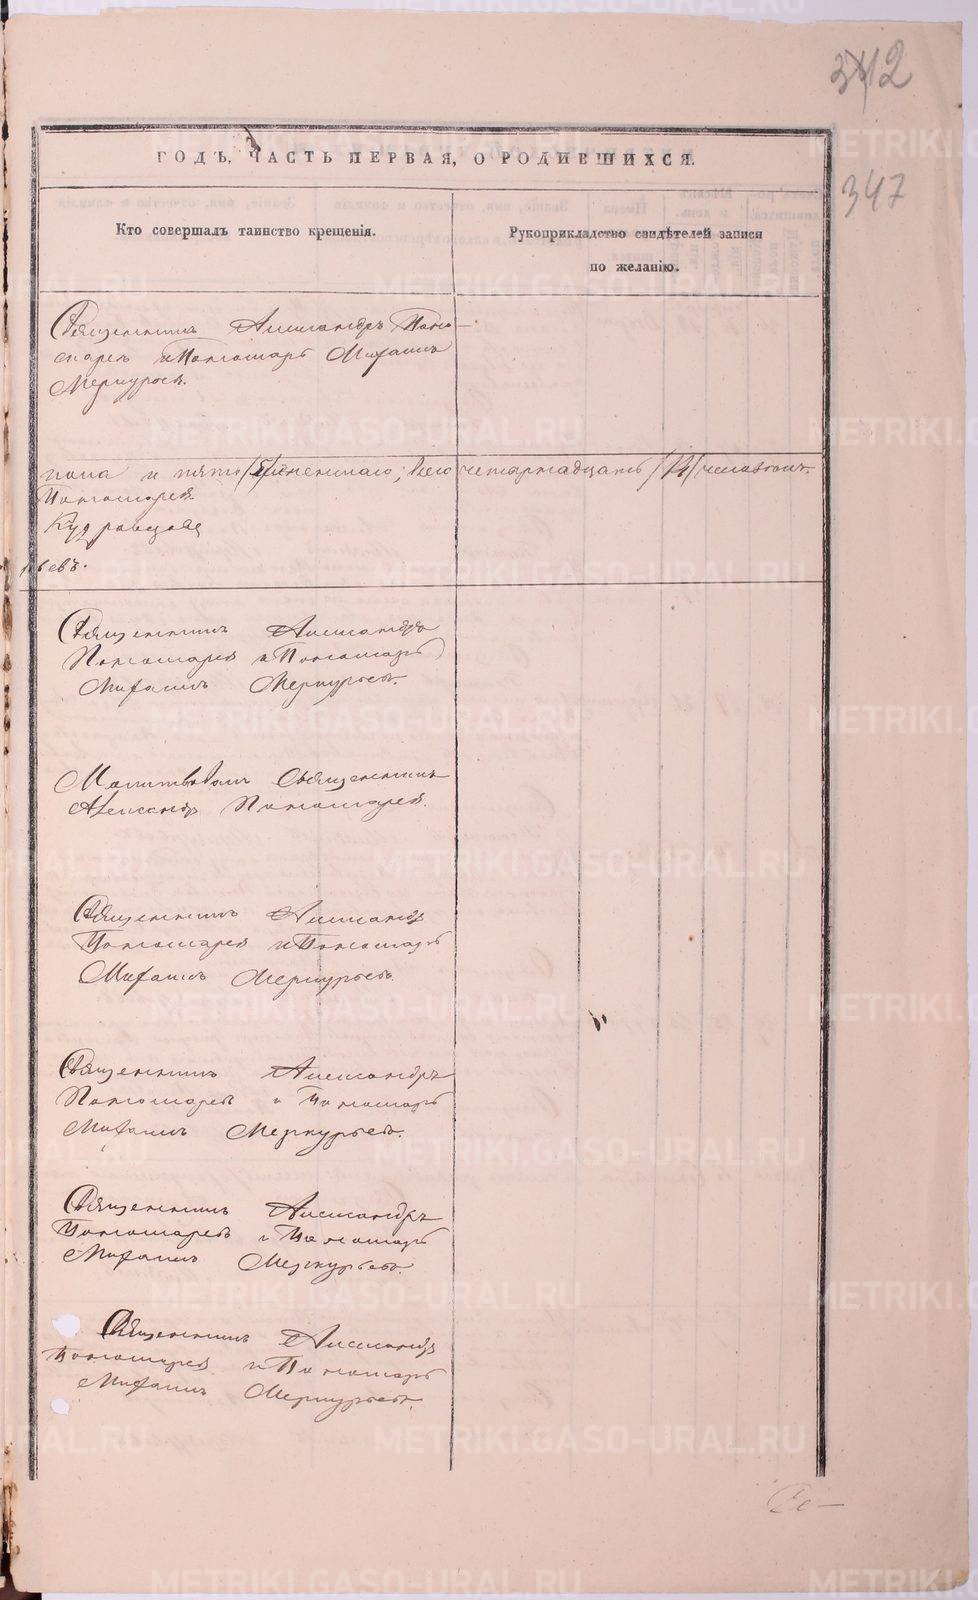 342
347
ГОДЪ, ЧАСТЬ ПЕРВАЯ, О РОДИВШИХСЯ.
Кто совершалъ таинство крещенія.
Рукоприкладство свидѣтелей записи
по желанію.
Священникъ Александръ Поно-
маревъ и Пономарь Михаилъ
Меркурьевъ.
пола и пять /5/ женскаго; всего четырнадцать /14/ человѣкъ.
Пономаревъ.
Кудрявцевъ
ьевъ.
Священникъ Александръ
Пономаревъ и Пономарь
Михаилъ Меркурьевъ.
Молитвовалъ Священникъ
Александръ Пономаревъ.
Священникъ Александръ
Пономаревъ и Пономарь
Михаилъ Меркурьевъ.
Священникъ Александръ
Пономаревъ и Пономарь
Михаилъ Меркурьевъ.
Священникъ Александръ
Пономаревъ и Пономарь
Михаилъ Меркурьевъ.
Священникъ Александръ
Пономаревъ и Пономарь
Михаилъ Меркурьевъ.
METRIKI.GASO-URAL.RU